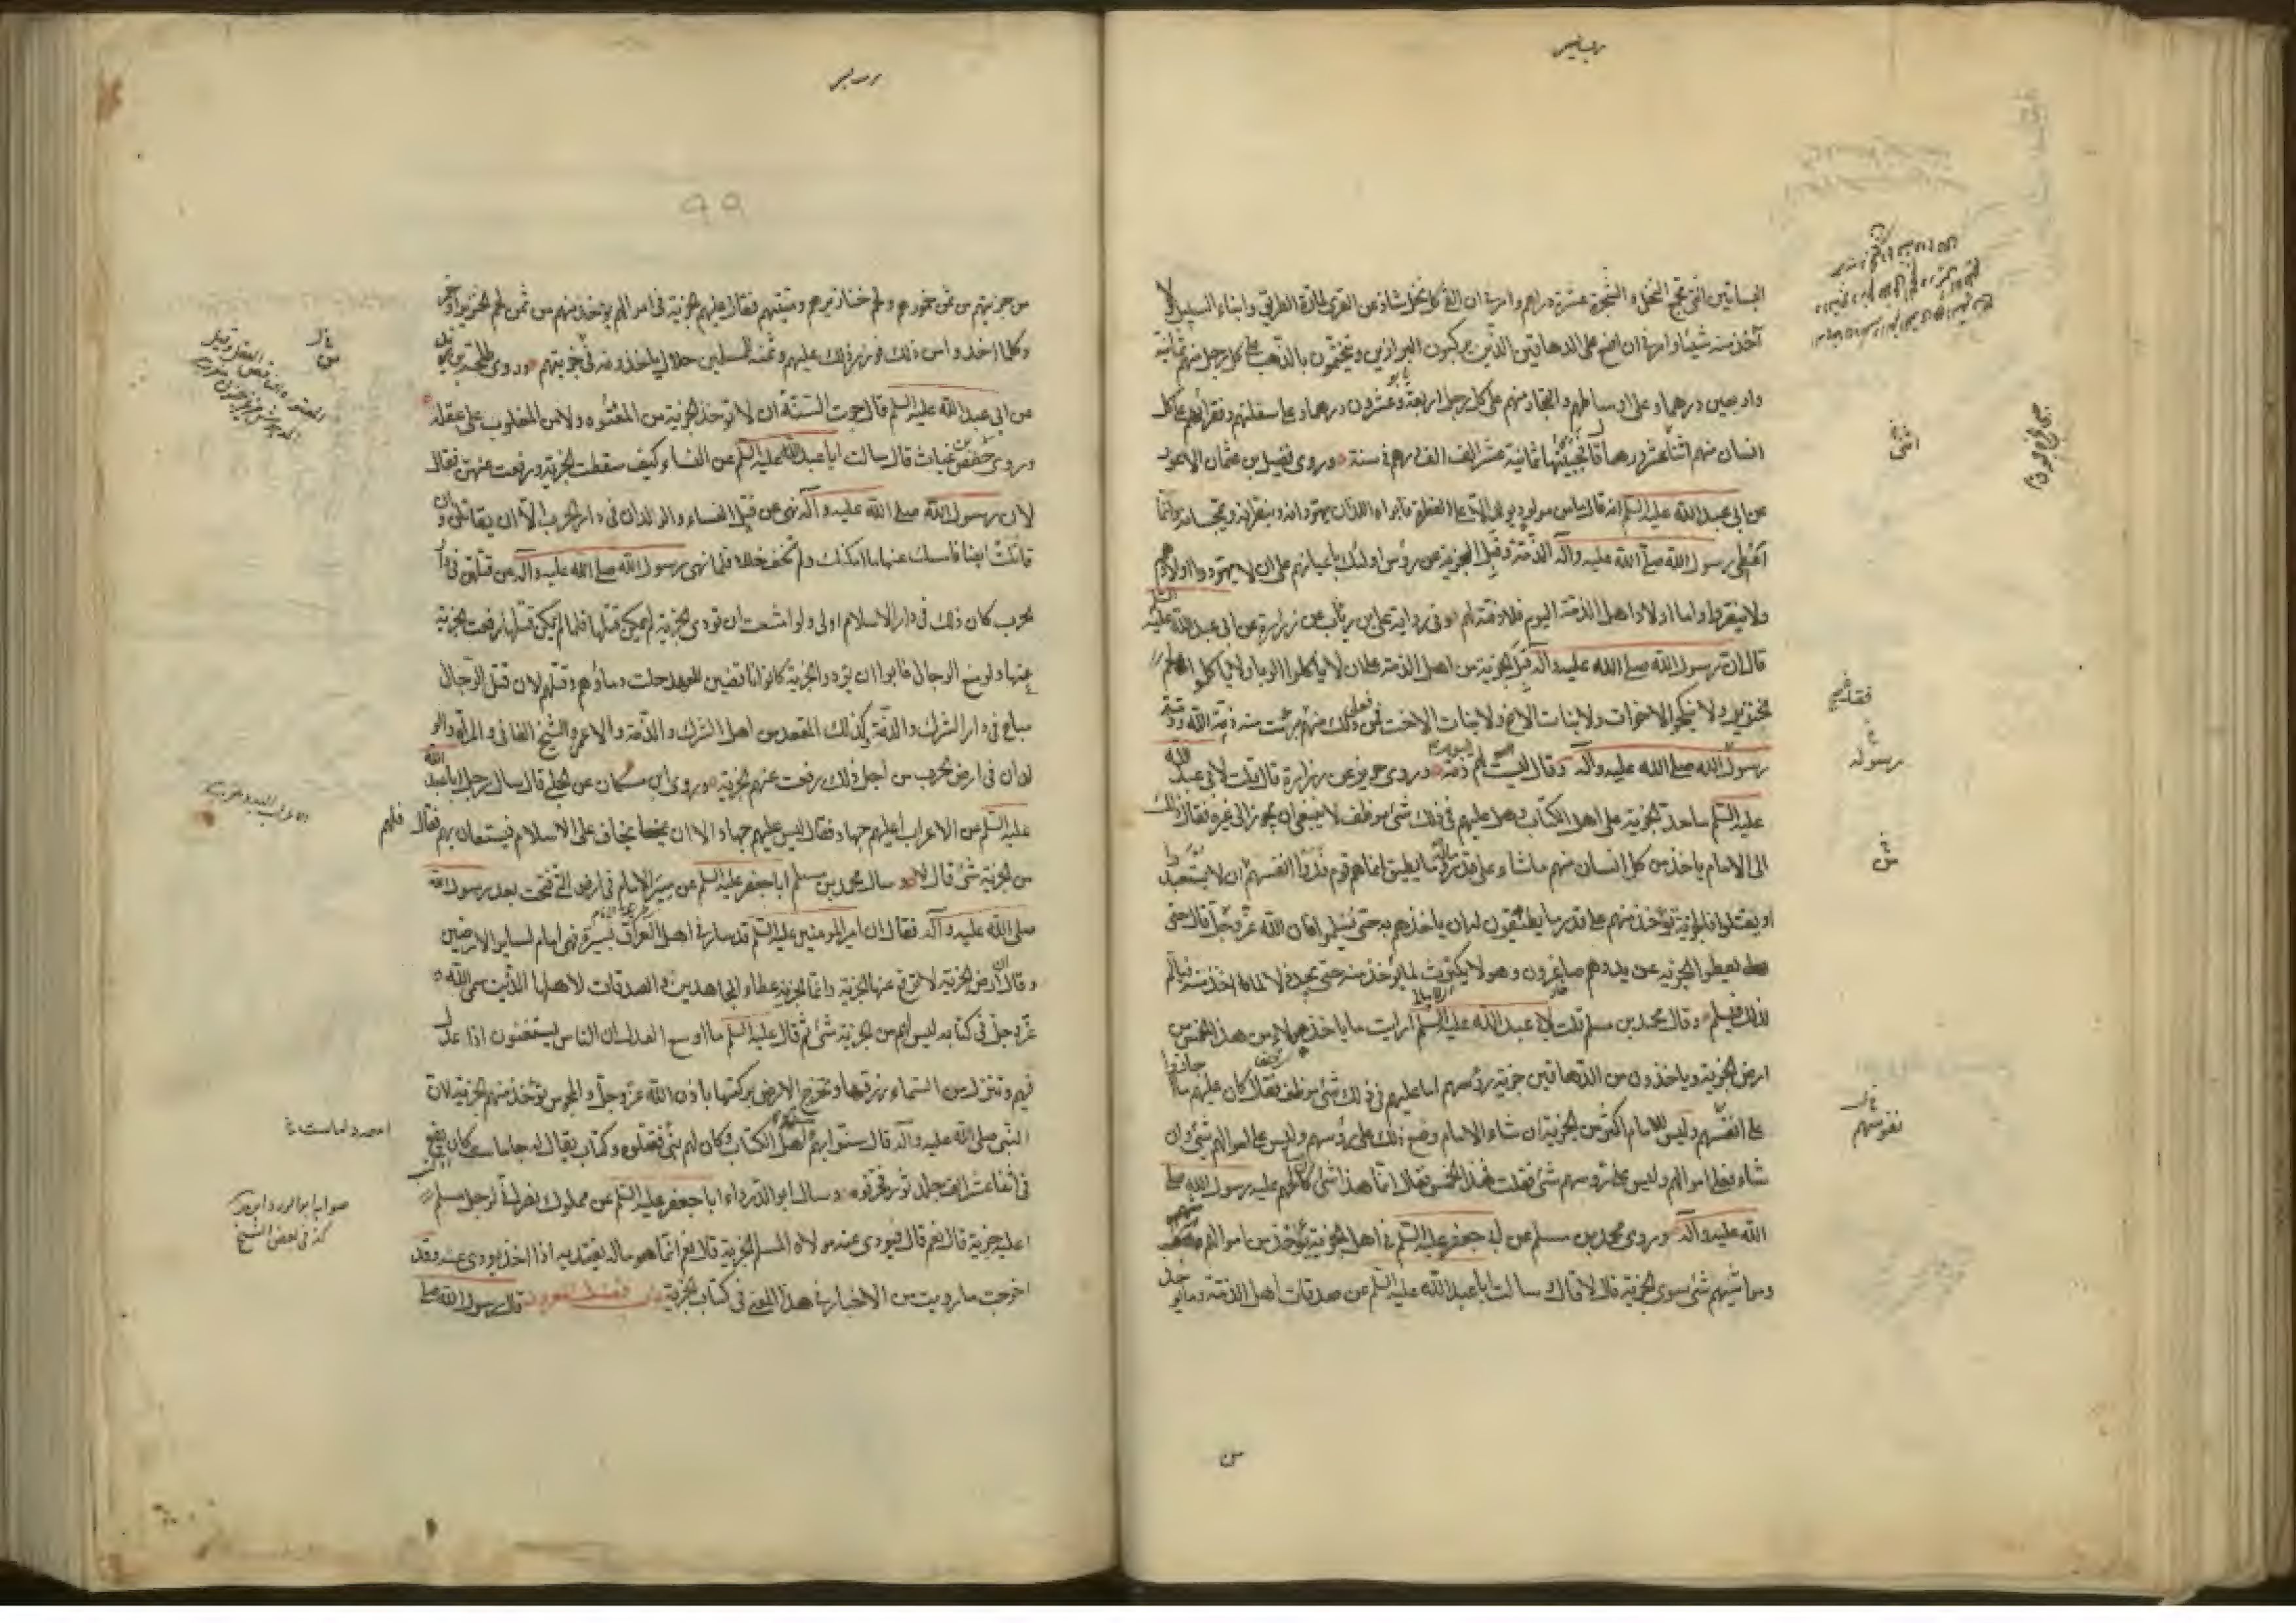 البساتين التي تجمع النخل والشجر عشرة دراهم وامرني ان القي كل نخل شاذ عن القرى لمارة الطريق وابناء السبيل لا
آخذ منه شيئا وامرني ان اضع على الدهاقين الذين يركبون البراذين ويتختمون بالذهب على كل رجل منهم ثمانية
واربعين درهما وعلى اوساطهم والتجار منهم على كل رجل اربعة وعشرون درهما وعلى سفلتهم وفقرائهم على كل
انسان منهم اثنا عشر درهما قال فجبيتها ثمانية عشر الف الف درهم في سنة وروى فضيل بن عثمان الاعور
عن ابي عبد الله عليه السلم انه قال ما من مولود يولد الا على الفطرة فابواه اللذان يهودانه وينصرانه ويمجسانه وانما
اعطى رسول الله صلى الله عليه وآله الذمة وقبل الجزية عن رؤس اولئك باعيانهم على ان لا يهودوا اولادهم
ولا ينصروا واما اولاد اهل الذمة اليوم فلا ذمة لهم وفي رواية علي بن رئاب عن زرارة عن ابي عبد الله عليه السلم
قال ان رسول الله صلى الله عليه وآله قبل الجزية من اهل الذمة على ان لا ياكلوا الربا ولا ياكلوا لحم
الخنزير ولا ينكحوا الاخوات ولا بنات الاخ ولا بنات الاخت فمن فعل ذلك منهم برئت منه ذمة الله وذمة
رسول الله صلى الله عليه وآله وقال ليست لهم اليوم ذمة وروى حريز عن زرارة قال قلت لابي عبد الله
عليه السلم ما حد الجزية على اهل الكتاب وهل عليهم في ذلك شئ موظف لا ينبغي ان يجوز الى غيره فقال ذلك
الى الامام ياخذ من كل انسان منهم ما شاء على قدر ماله ما يطيق انما هم قوم فدوا انفسهم ان لا يستعبدوا
او يقتلوا فالجزية تؤخذ منهم على قدر ما يطيقون له ان ياخذهم به حتى يسلموا فان الله عز وجل قال حتى
يعطوا الجزية عن يد وهم صاغرون وهو لا يكترث لما يؤخذ منه حتى يجد ذلا لما اخذ منه فيالم
لذلك فيسلم وقال محمد بن مسلم قلت لابي عبد الله عليه السلم ارايت ما ياخذ هؤلاء من هذا الخمس من
ارض الجزية وياخذون من الدهاقين جزية رؤسهم اما عليهم في ذلك شئ موظف فقال كان عليهم ما اجازوا
على انفسهم وليس للامام اكثر من الجزية ان شاء الامام وضع ذلك على رؤسهم وليس على اموالهم شئ وان
شاء فعلى اموالهم وليس على رؤسهم شئ فقلت فهذا الخمس فقال انما هذا شئ كان صالحهم عليه رسول الله صلى
الله عليه وآله وروى محمد بن مسلم عن ابي جعفر عليه السلم في اهل الجزية يؤخذ من اموالهم
ومواشيهم شئ سوى الجزية قال لا قال وسالت ابا عبد الله عليه السلم عن صدقات اهل الذمة وما يؤخذ
اثنى
فقد
رسوله
ش
نفوسهم
من
99
من جزيتهم من ثمن خمورهم ولحم خنازيرهم وميتتهم فقال عليهم الجزية في اموالهم يؤخذ منهم من ثمن لحم الخنزير او خمر
وكلما اخذوا من ذلك فوزر ذلك عليهم وثمنه للمسلمين حلال ياخذونه في جزيتهم وروى طلحة بن زيد
عن ابي عبد الله عليه السلم قال جرت السنة ان لا تؤخذ الجزية من المعتوه ولا من المغلوب على عقله
وروى حفص بن غياث قال سالت ابا عبد الله عليه السلم عن النساء وكيف سقطت الجزية ورفعت عنهن فقال
لان رسول الله صلى الله عليه وآله نهى عن قتل النساء والولدان في دار الحرب الا ان يقاتلن وان
قاتلت ايضا فامسك عنها ما امكنك ولم تخف خللا فلما نهى رسول الله صلى الله عليه وآله عن قتلهن في دار
الحرب كان ذلك في دار الاسلام اولى ولو امتنعت ان تؤدى الجزية لم يمكن قتلها فلما لم يمكن قتلها رفعت الجزية
عنها ولو منع الرجال فابوا ان يؤدوا الجزية كانوا ناقضين للعهد وحلت دماؤهم وقتلهم لان قتل الرجال
مباح في دار الشرك والذمة وكذلك المقعد من اهل الشرك والذمة والاعمى والشيخ الفاني والمراة والو
لدان في ارض الحرب من اجل ذلك رفعت عنهم الجزية وروى ابن مسكان عن الحلبي قال سال رجل ابا عبد الله
عليه السلم عن الاعراب اعليهم جهاد فقال ليس عليهم جهاد الا ان يخاف على الاسلام فيستعان بهم فقال فلهم
من الجزية شئ قال لا وسال محمد بن مسلم ابا جعفر عليه السلم عن سير الامام في الارض التي فتحت بعد رسول الله
صلى الله عليه وآله فقال ان امير المومنين عليه السلم قد سار في اهل العراق بسيرة فهي امام لسائر الارضين
وقال ان ارض الجزية لا ترفع عنها الجزية وانما الجزية عطاء المجاهدين والصدقات لاهلها الذين سمى الله
عز وجل في كتابه ليس لهم من الجزية شئ ثم قال عليه السلم ما اوسع العدل ان الناس يستغنون اذا عدل
فيهم وتنزل من السماء رزقها وتخرج الارض بركتها باذن الله عز وجل والمجوس تؤخذ منهم الجزية لان
النبي صلى الله عليه وآله قال سنوا بهم سنة اهل الكتاب وكان لهم نبي فقتلوه وكتاب يقال له جاماست كان يقع
في اثنا عشر الف جلد ثور فحرقوه وسال ابو الدرداء ابا جعفر عليه السلم عن مملوك نصراني لرجل مسلم
اعليه جزية قال نعم قال فيودى عنه مولاه المسلم الجزية قال نعم انما هو ماله يفتديه اذا اخذ يودى عنه وقد
اخرجت ما رويت من الاخبار في هذا المعنى في كتاب الجزية باب فضل المعروف قال رسول الله صلى
صوابه ابو الورد
كذا في بعض النسخ